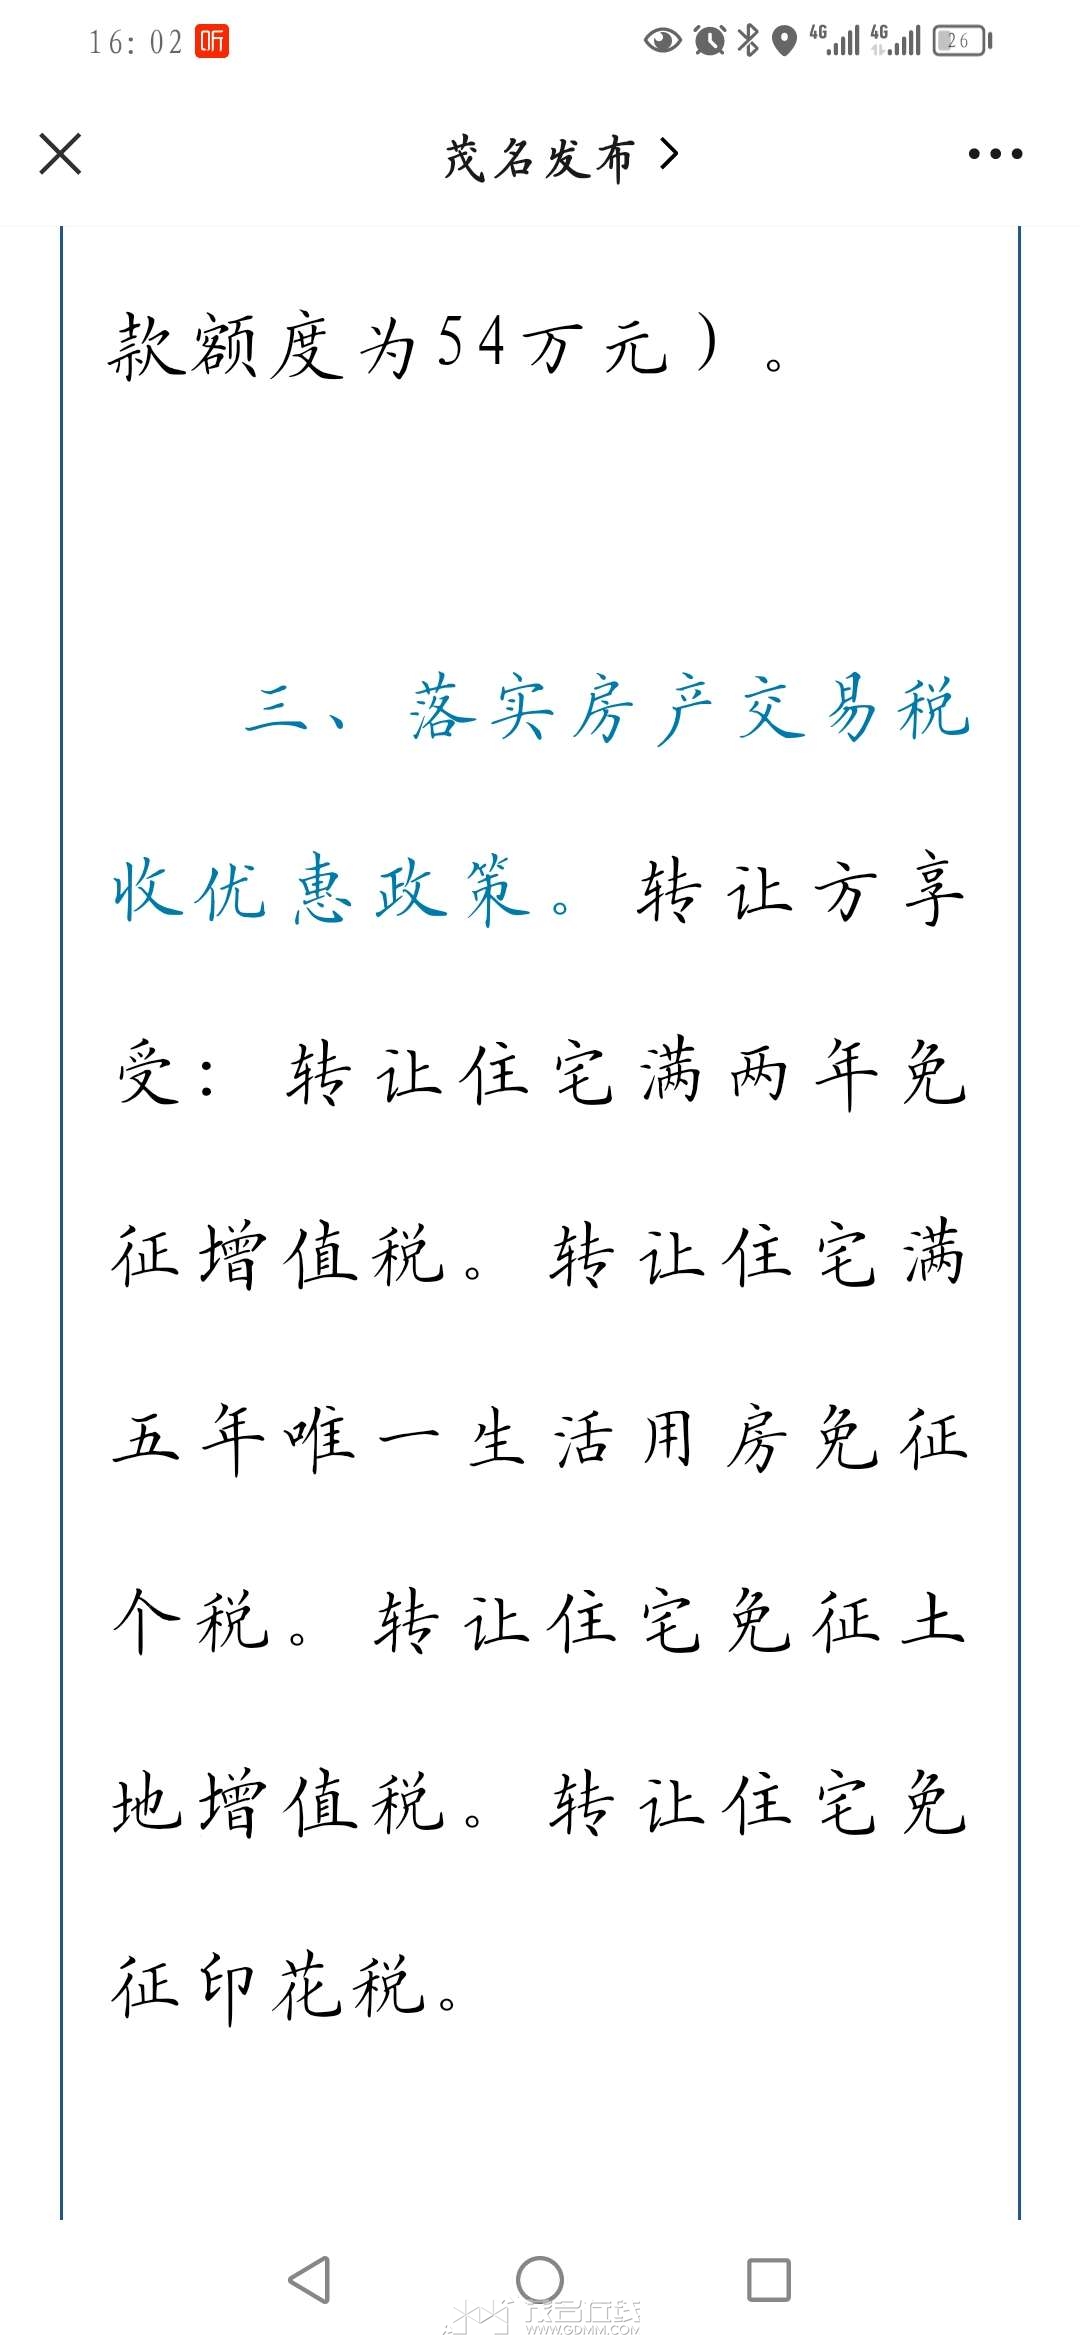 16:02 听 4G 4G 26
茂名发布
款额度为54万元）。
三、落实房产交易税
收优惠政策。转让方享
受：转让住宅满两年免
征增值税。转让住宅满
五年唯一生活用房免征
个税。转让住宅免征土
地增值税。转让住宅免
征印花税。
茂名在线
WWW.GDMM.COM